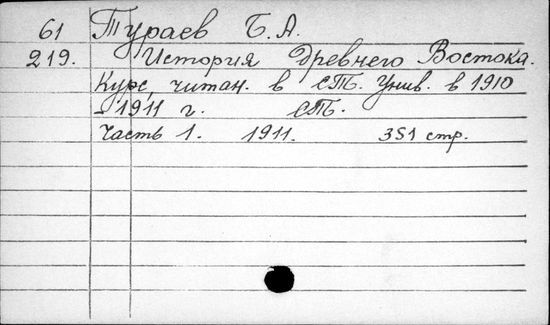 61 Тураев Б. А.
219. История Древнего Востока.
Курс, читан. в СПб. Унив. в 1910
-1911 г. СПб.
Часть 1. 1911. 351 стр.